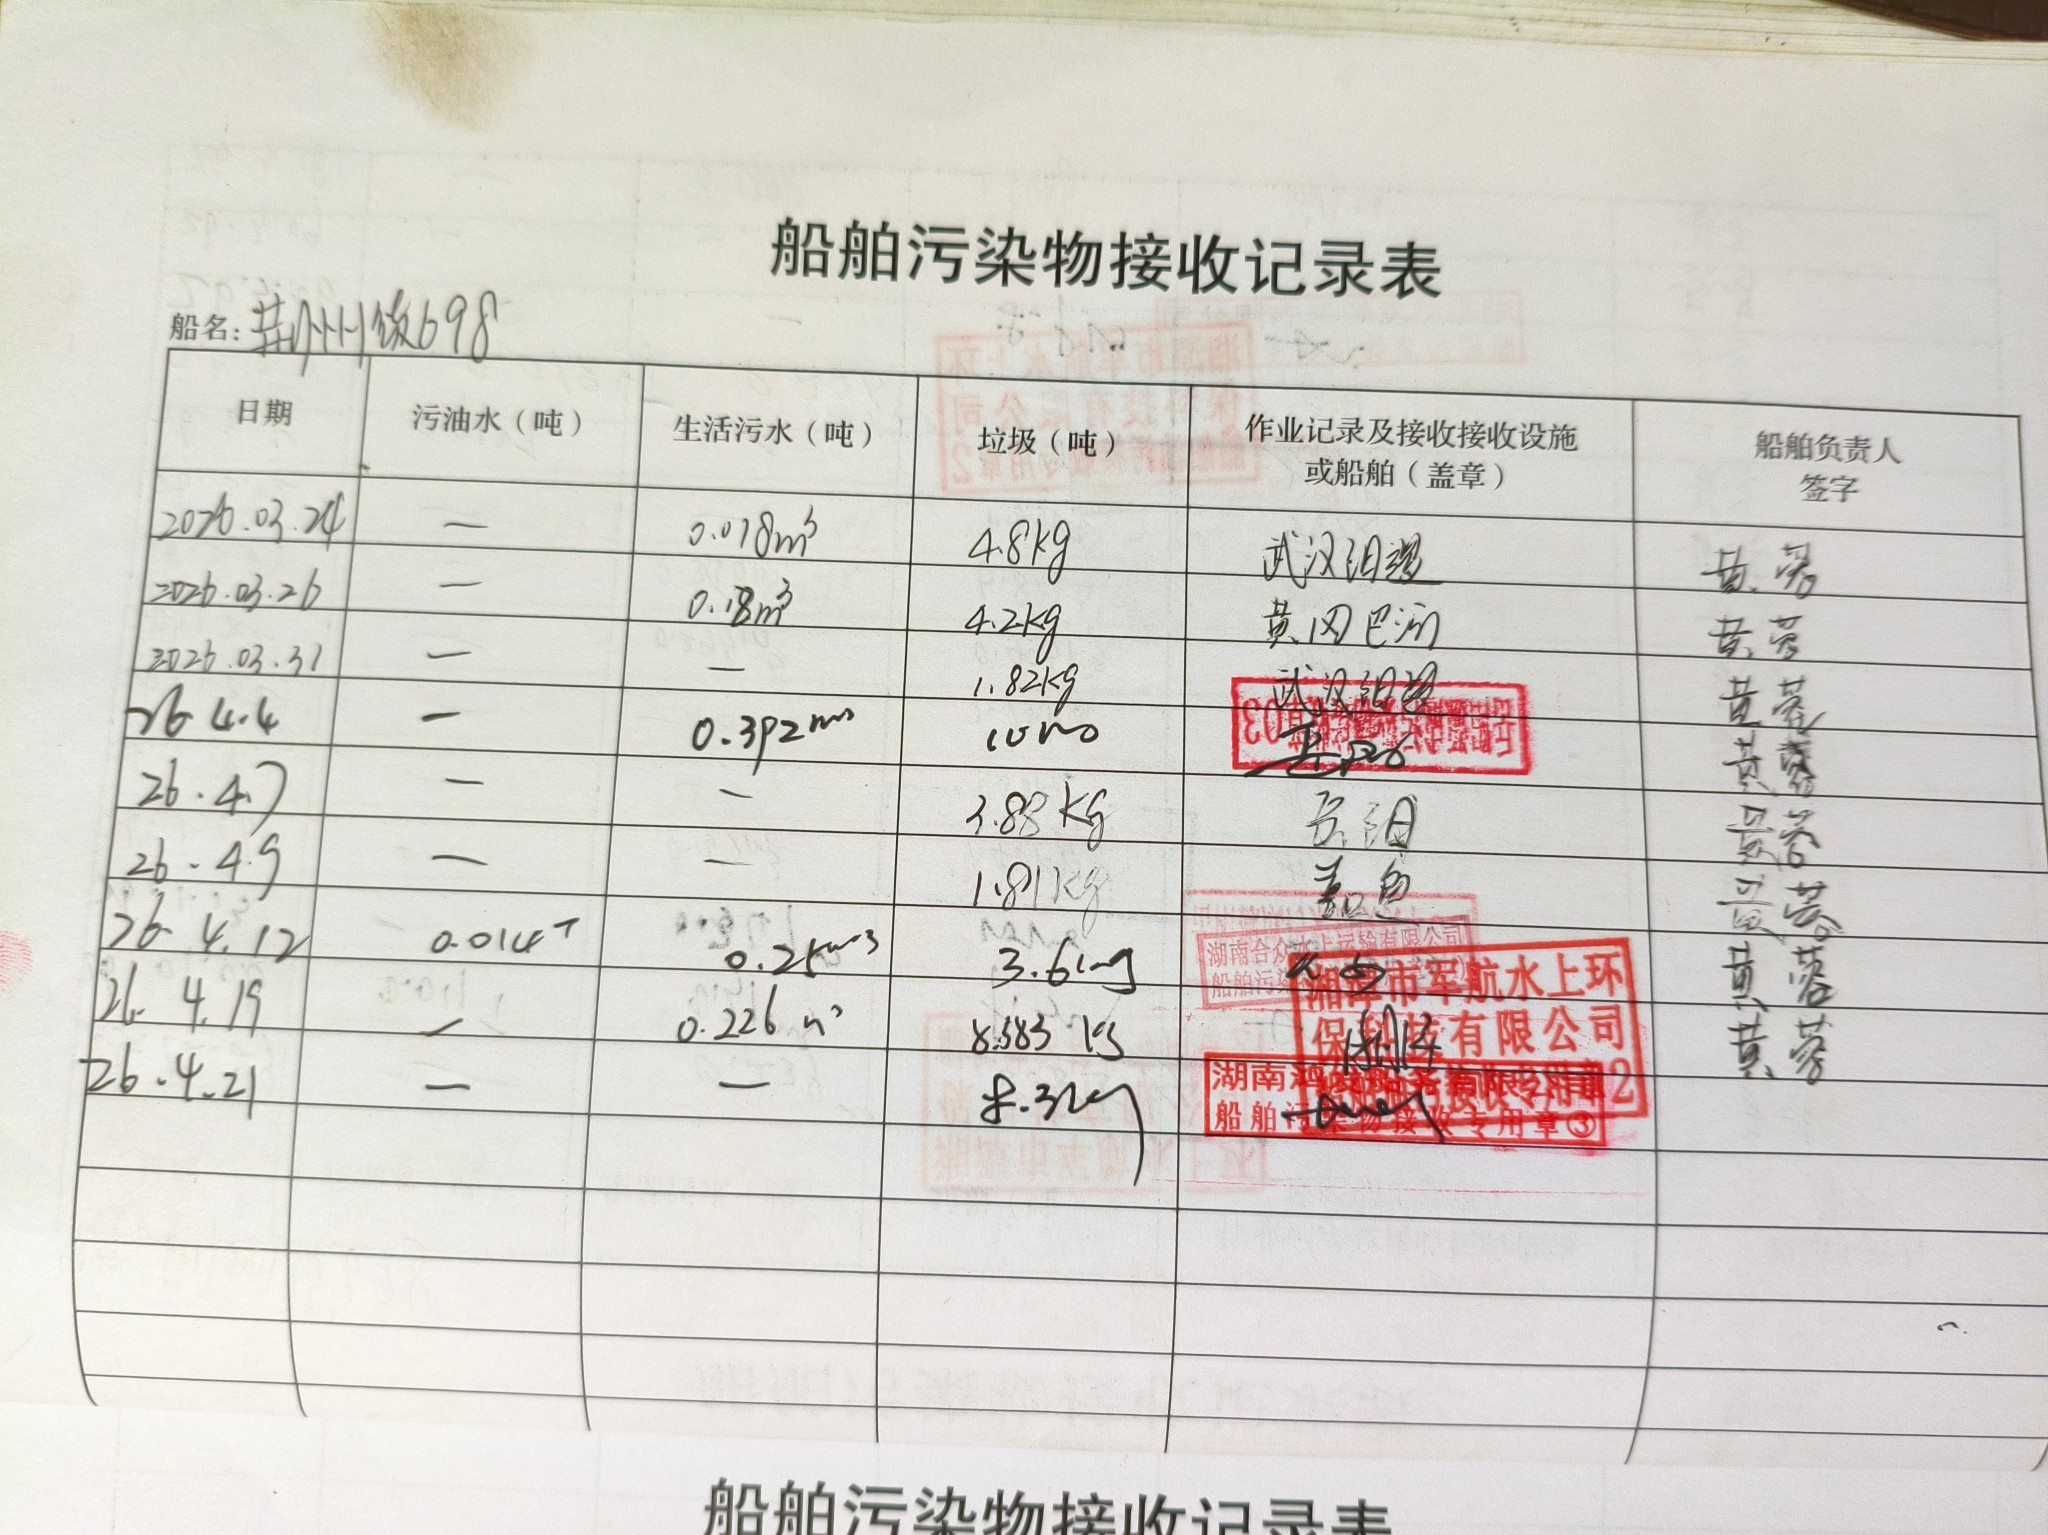 船舶污染物接收记录表
船名: 荆州 698
日期 污油水（吨） 生活污水（吨） 垃圾（吨） 作业记录及接收接收设施或船舶（盖章） 船舶负责人签字
2026.03.24 — 0.018m³ 4.8kg 武汉 黄蓉
2026.03.26 — 0.18m³ 4.2kg 黄冈巴河 黄蓉
2026.03.31 — — 1.82kg 武汉 黄蓉
26.4.4 — 0.392m³ 黄蓉
26.4.7 — — 3.88kg 黄蓉
26.4.9 — — 1.81kg 黄蓉
26.4.12 0.014T 0.25m³ 3.6kg 黄蓉
湖南合众水上运输有限公司
船舶污染
26.4.19 — 0.226m³ 8.583kg 黄蓉
湘潭市军航水上环
保科技有限公司
26.4.21 — — 8.3kg
湖南
船舶污染物接收专用章③
船舶污染物接收记录表